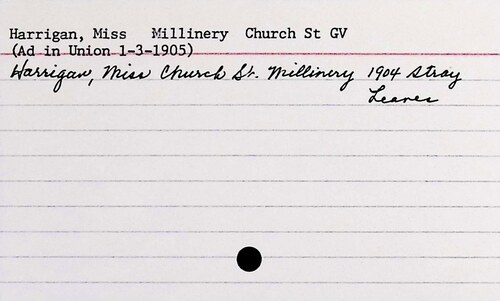 Harrigan, Miss Millinery Church St GV
(Ad in Union 1-3-1905)
Harrigan, Miss Church St. Millinery 1904 Stray
Leaves